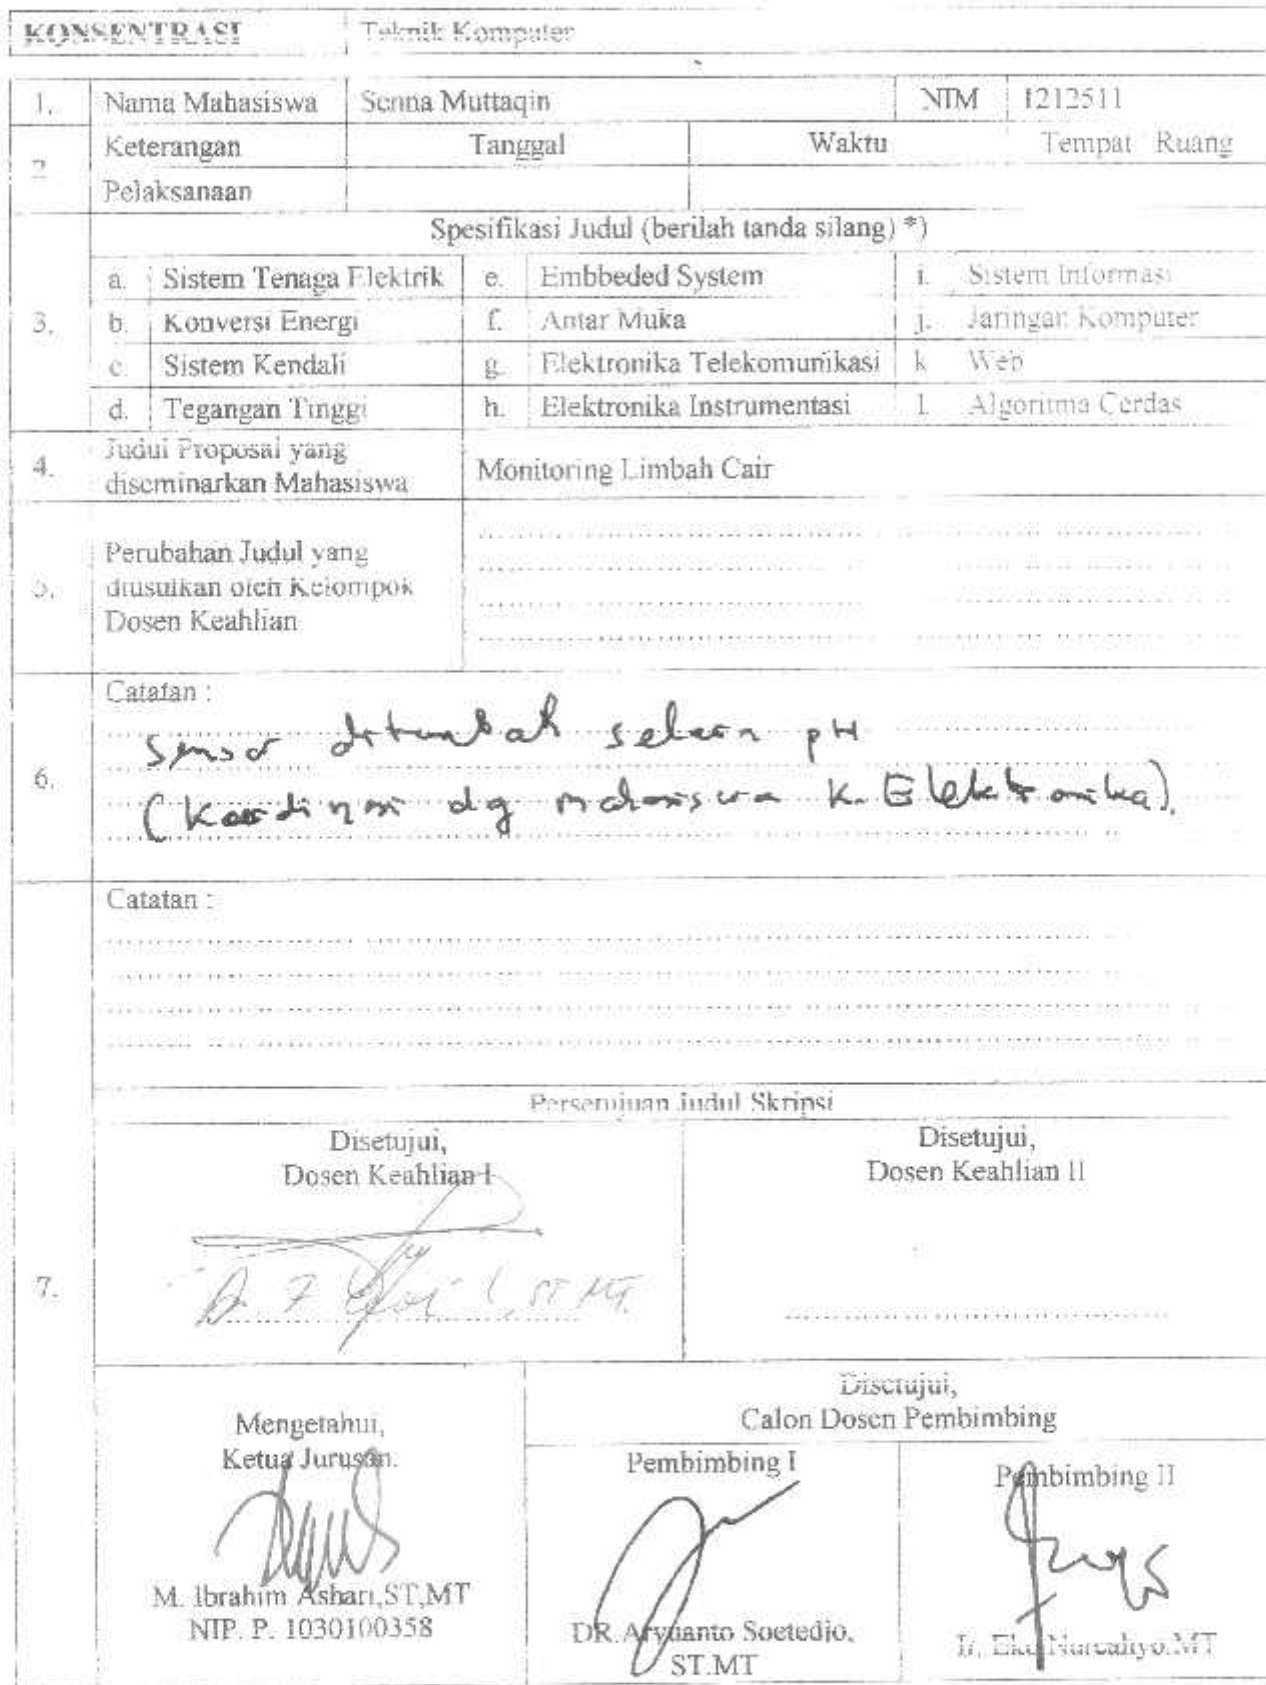 KONSENTRASI Teknik Komputer
1. Nama Mahasiswa Senna Muttaqin NIM 1212511
2. Keterangan Tanggal Waktu Tempat Ruang
Pelaksanaan
3. Spesifikasi Judul (berilah tanda silang) *)
a. Sistem Tenaga Elektrik e. Embbeded System i. Sistem Informasi
b. Konversi Energi f. Antar Muka j. Jaringan Komputer
c. Sistem Kendali g. Elektronika Telekomunikasi k Web
d. Tegangan Tinggi h. Elektronika Instrumentasi l. Algoritma Cerdas
4. Judul Proposal yang
diseminarkan Mahasiswa Monitoring Limbah Cair
5. Perubahan Judul yang
diusulkan oleh Kelompok
Dosen Keahlian
6. Catatan :
Sensor ditambah selain pH
(Koordinasi dg mahasiswa k. Elektronika).
Catatan :
7. Persetujuan Judul Skripsi
Disetujui,
Dosen Keahlian I
Disetujui,
Dosen Keahlian II
ST MT.
Mengetahui,
Ketua Jurusan.
M. Ibrahim Ashari,ST,MT
NIP. P. 1030100358
Disetujui,
Calon Dosen Pembimbing
Pembimbing I
DR.Aryuanto Soetedjo,
ST.MT
Pembimbing II
Ir. Eko Nurcahyo.MT